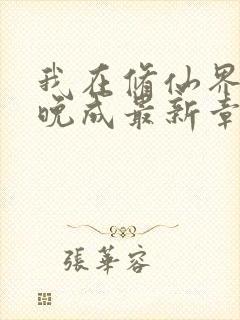 我在修仙界
晚成最新章
張華容